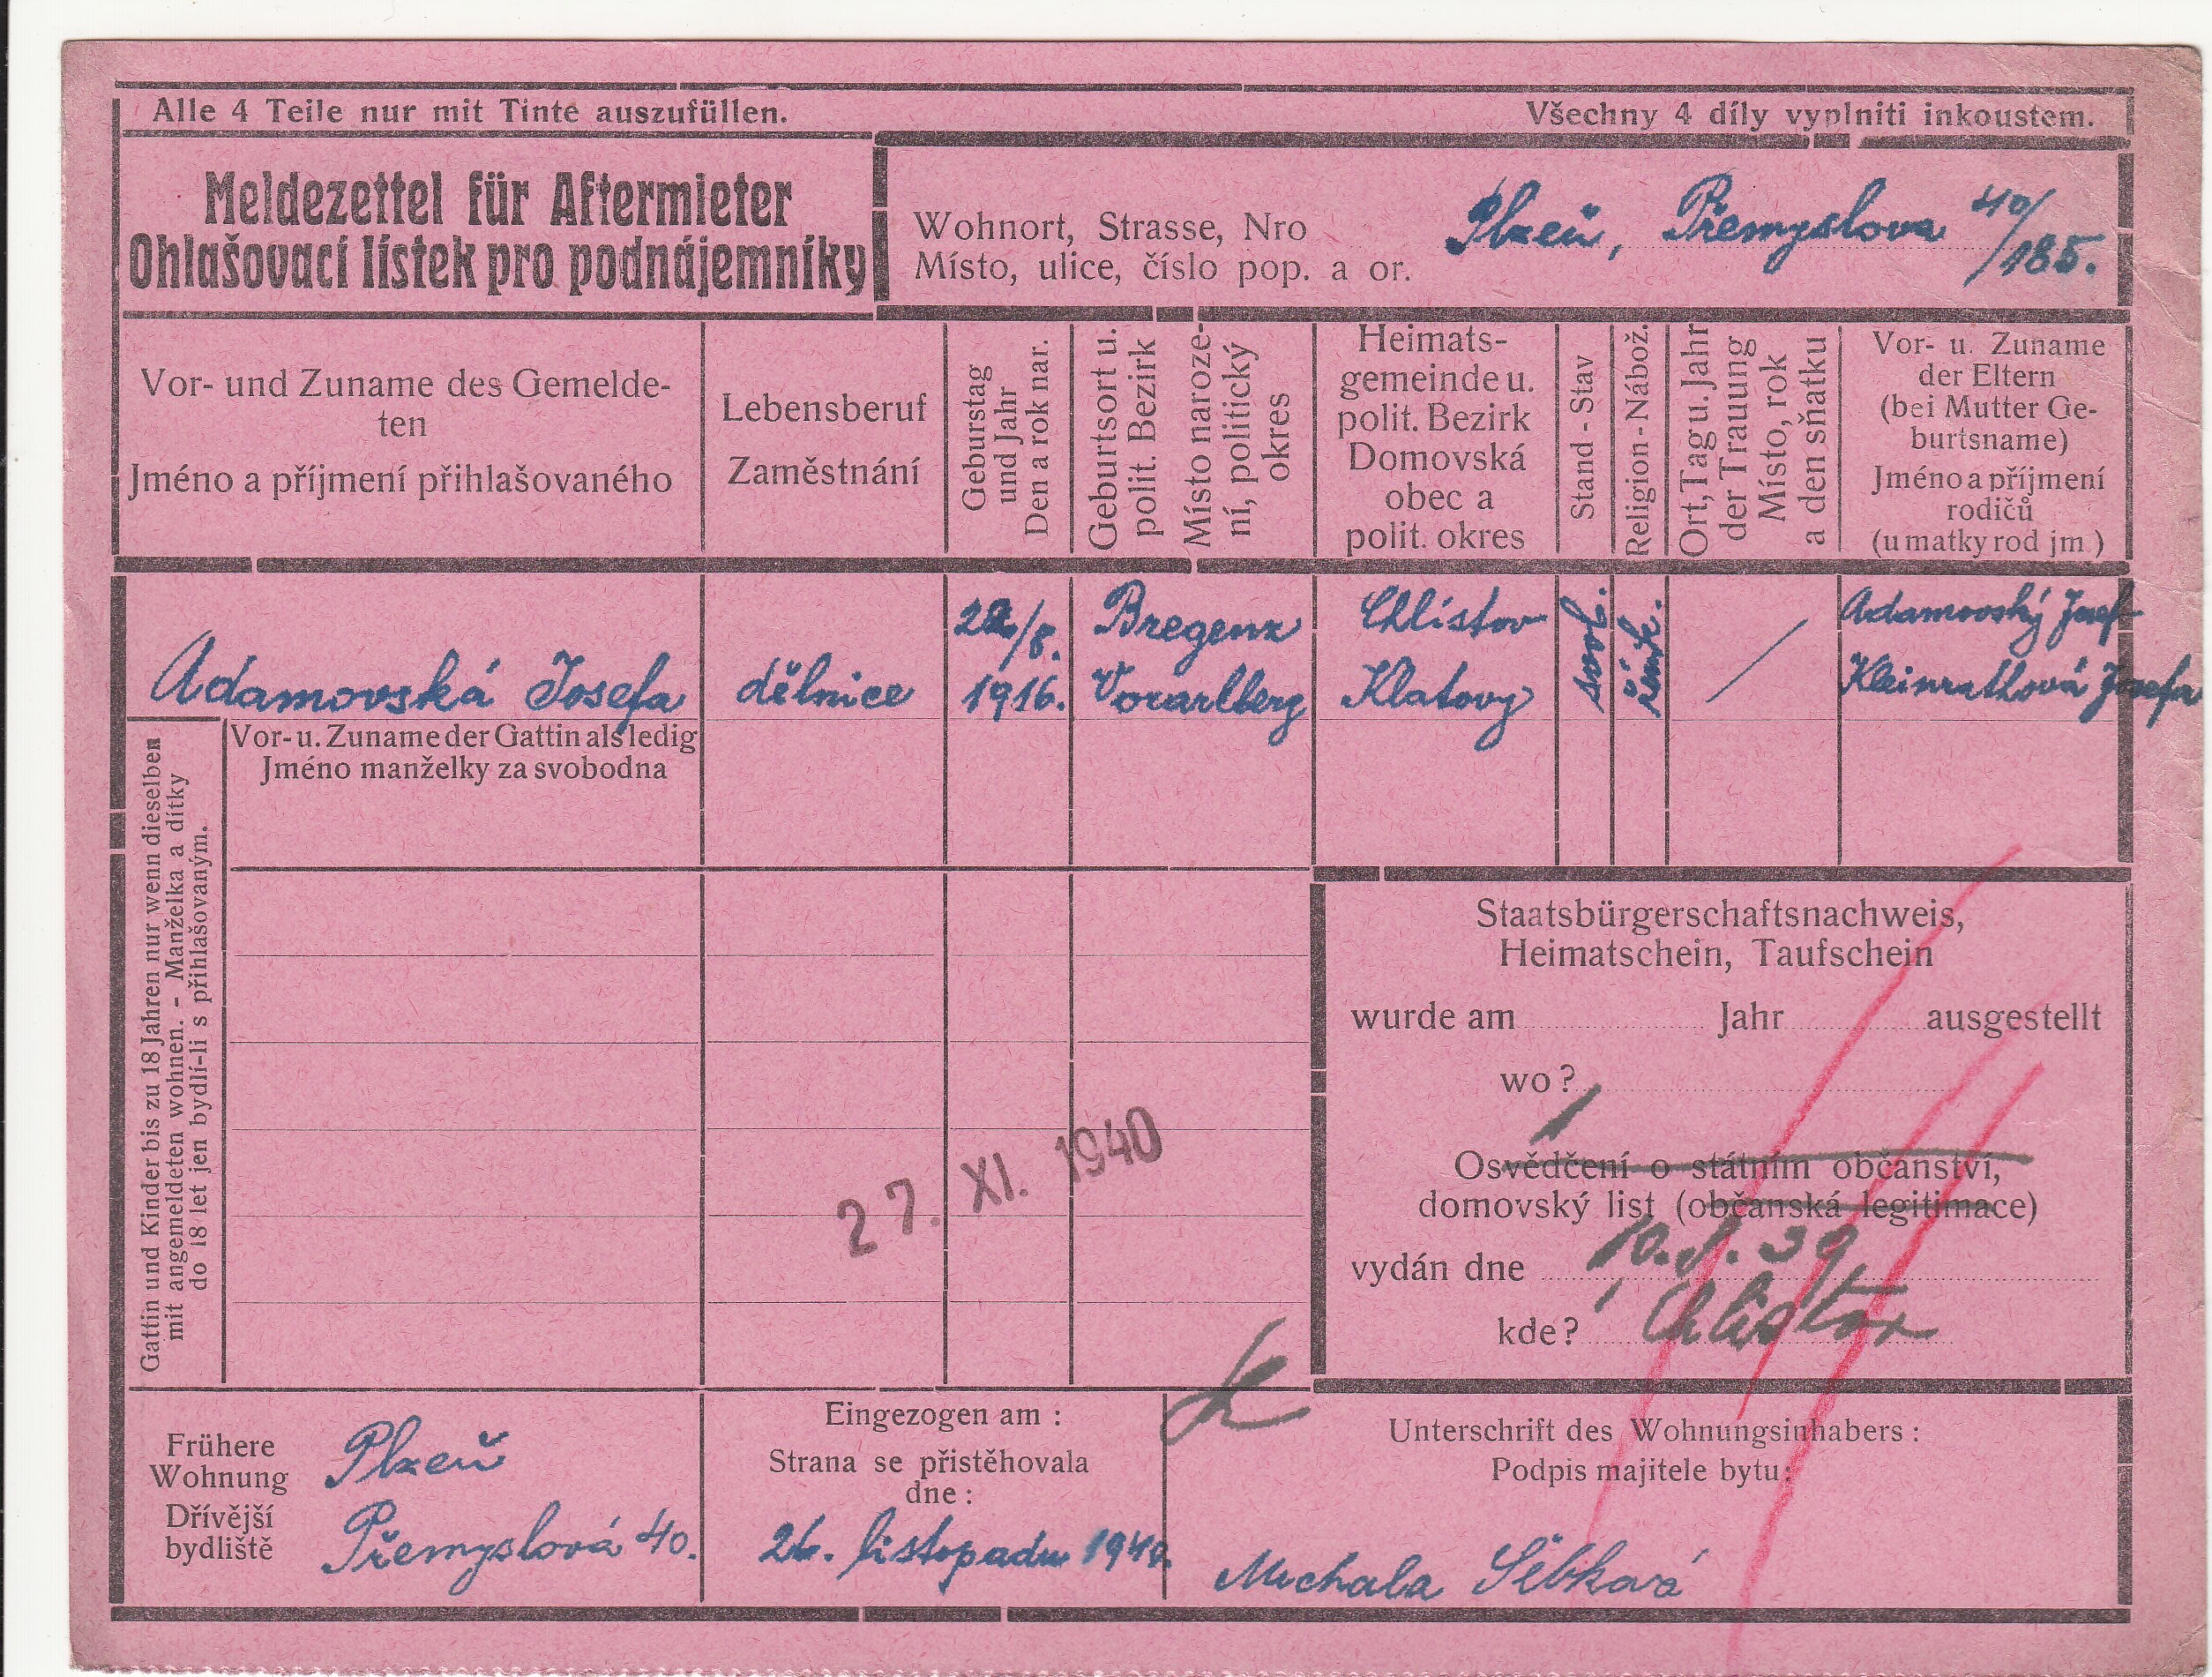 Alle 4 Teile nur mit Tinte auszufüllen.
Všechny 4 díly vyplniti inkoustem.
Meldezettel für Aftermieter
Ohlašovací lístek pro podnájemníky
Wohnort, Strasse, Nro
Místo, ulice, číslo pop. a or.
Plzeň, Přemyslova 40/185.
Vor- und Zuname des Gemelde-
ten
Jméno a příjmení přihlašovaného
Lebensberuf
Zaměstnání
Geburstag
und Jahr
Den a rok nar.
Geburtsort u.
polit. Bezirk
Místo naroze-
ní, politický
okres
Heimats-
gemeinde u.
polit. Bezirk
Domovská
obec a
polit. okres
Stand - Stav
Religion - Nábož.
Ort, Tag u. Jahr
der Trauuung
Místo, rok
a den sňatku
Vor- u. Zuname
der Eltern
(bei Mutter Ge-
burtsname)
Jméno a příjmení
rodičů
(u matky rod jm.)
Adamovská Josefa
dělnice
22/8.
1916.
Bregenz
Vorarlberg
Chlístov
Klatovy
svob.
řím.k.
Adamovský Josef
Kleinrathová Josefa
Vor- u. Zuname der Gattin als ledig
Jméno manželky za svobodna
Gattin und Kinder bis zu 18 Jahren nur wenn dieselben
mit angemeldeten wohnen. - Manželka a dítky
do 18 let jen bydlí-li s přihlašovaným.
27. XI. 1940
Staatsbürgerschaftsnachweis,
Heimatschein, Taufschein
wurde am Jahr ausgestellt
wo?
Osvědčení o státním občanství,
domovský list (občanská legitimace)
vydán dne 10.8.39
kde? Chlistov
Frühere
Wohnung
Dřívější
bydliště
Plzeň
Přemyslová 40.
Eingezogen am :
Strana se přistěhovala
dne :
26. listopadu 1940.
Unterschrift des Wohnungsinhabers :
Podpis majitele bytu:
Michala